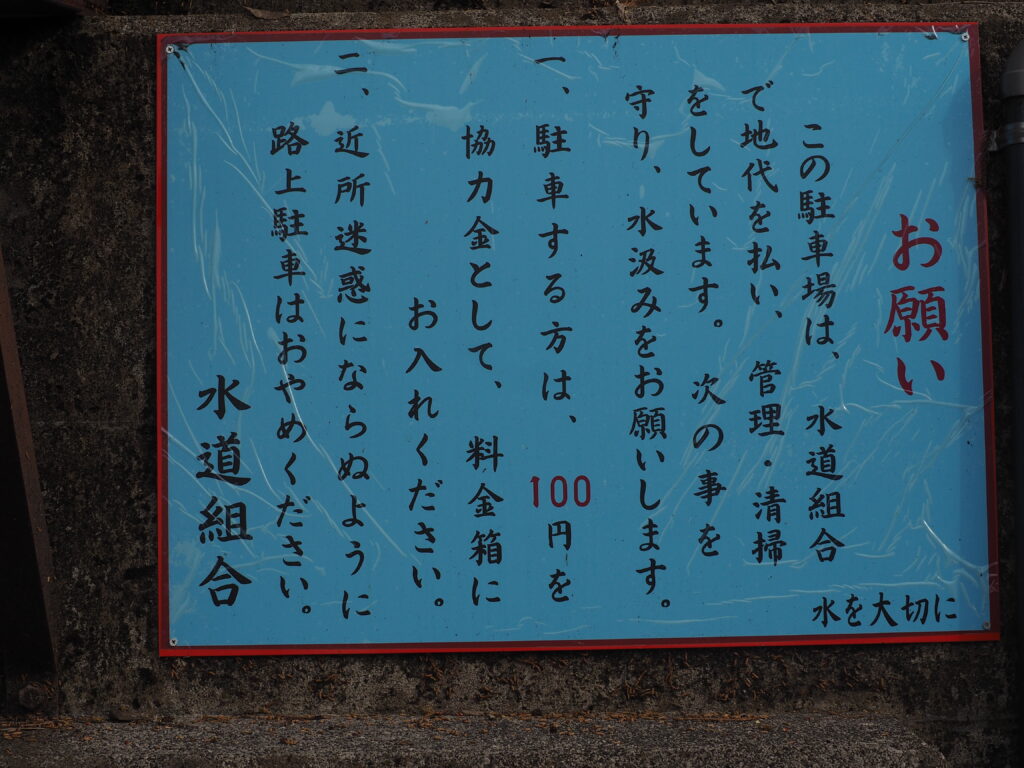 お願い
この駐車場は、水道組合
で地代を払い、管理・清掃
をしています。次の事を
守り、水汲みをお願いします。
一、駐車する方は、100円を
協力金として、料金箱に
お入れください。
二、近所迷惑にならぬように
路上駐車はおやめください。
水道組合
水を大切に